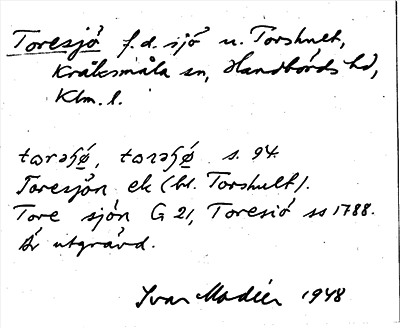 Toresjö f.d. sjö u. Torshult,
Kråksmåla sn, Handbörds hd,
Klm. l.
tɷrəɧø̄, tɷrəɧø̄ s. 94.
Toresjön ek (bl. Torshult).
Tore sjön G 21, Toresiö ss 1788.
Är utgrävd.
Ivar Modéer 1948